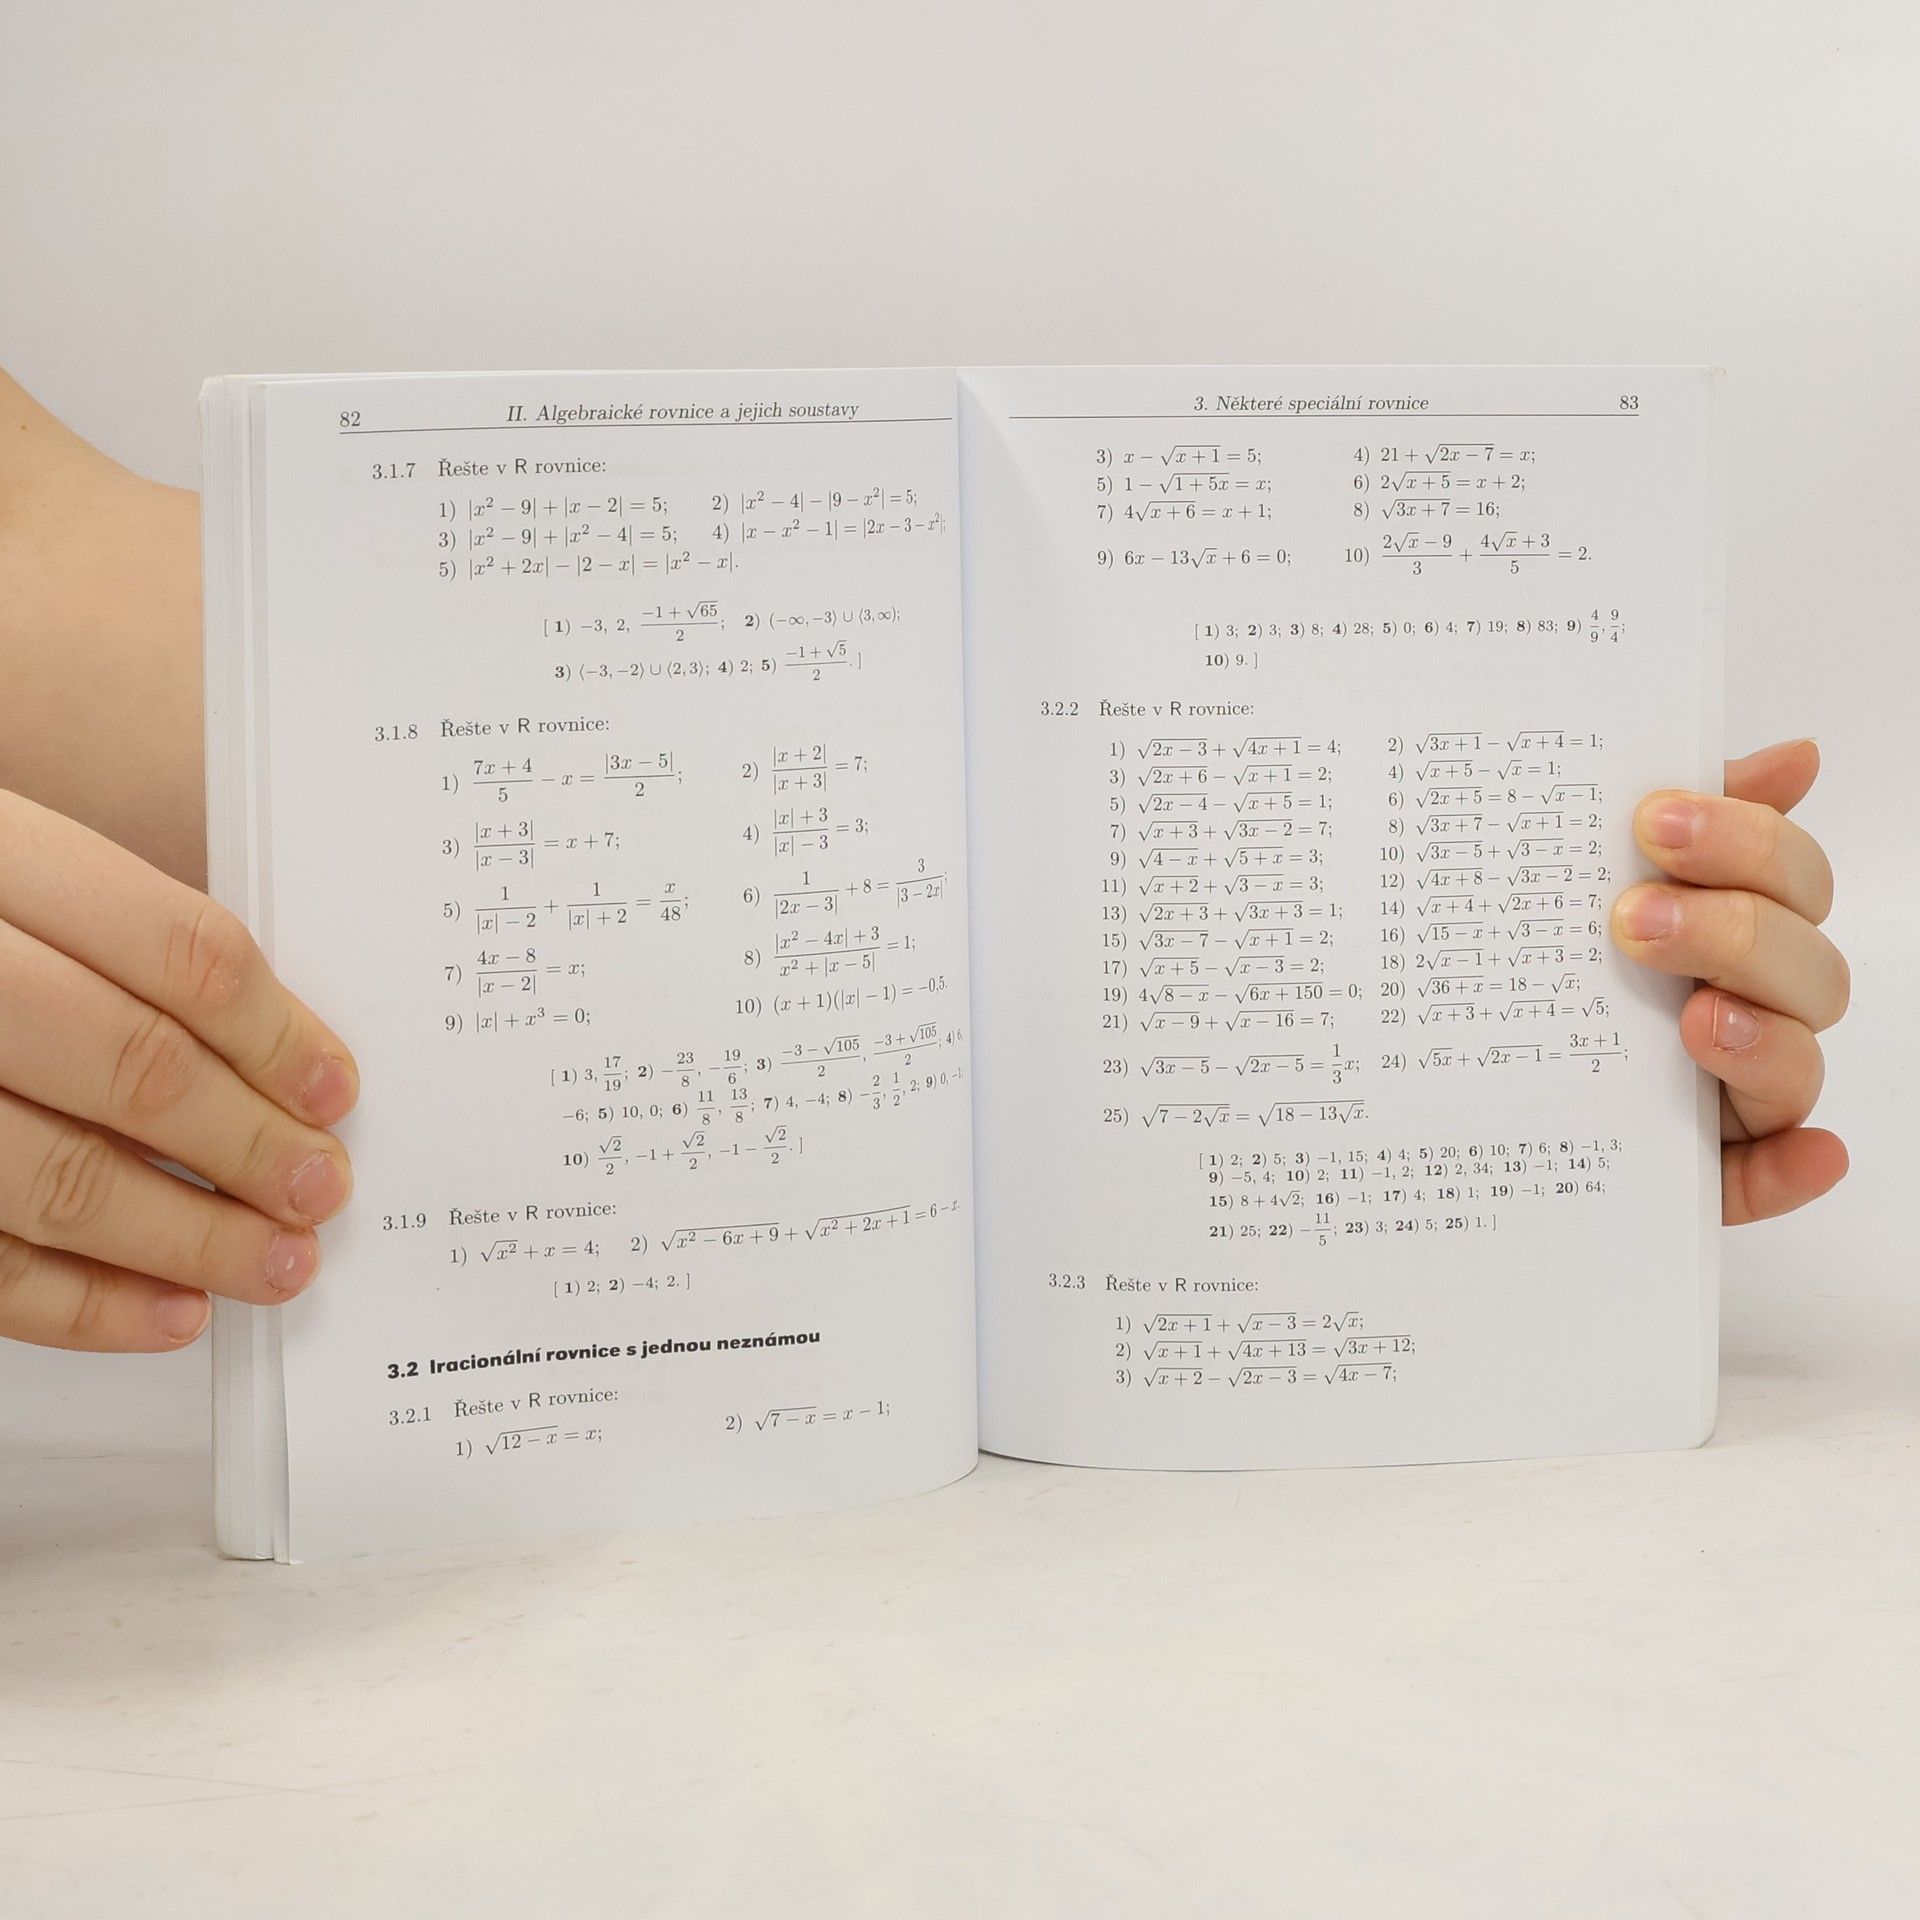 82 II. Algebraické rovnice a jejich soustavy
3.1.7 Řešte v R rovnice:
1) |x² − 9| + |x − 2| = 5; 2) |x² − 4| − |9 − x²| = 5;
3) |x² − 9| + |x² − 4| = 5; 4) |x − x² − 1| = |2x − 3 − x²|;
5) |x² + 2x| − |2 − x| = |x² − x|.
[ 1) −3, 2, (−1 + √65)/2; 2) (−∞, −3⟩ ∪ ⟨3, ∞);
3) ⟨−3, −2⟩ ∪ ⟨2, 3⟩; 4) 2; 5) (−1 + √5)/2. ]
3.1.8 Řešte v R rovnice:
1) (7x + 4)/5 − x = |3x − 5|/2; 2) |x + 2|/|x + 3| = 7;
3) |x + 3|/|x − 3| = x + 7; 4) (|x| + 3)/(|x| − 3) = 3;
5) 1/(|x| − 2) + 1/(|x| + 2) = x/48; 6) 1/|2x − 3| + 8 = 3/|3 − 2x|;
7) (4x − 8)/|x − 2| = x; 8) (|x² − 4x| + 3)/(x² + |x − 5|) = 1;
9) |x| + x³ = 0; 10) (x + 1)(|x| − 1) = −0,5.
[ 1) 3, 17/19; 2) −23/8, −19/6; 3) (−3 − √105)/2, (−3 + √105)/2; 4) 6,
−6; 5) 10, 0; 6) 11/8, 13/8; 7) 4, −4; 8) −2/3, 1/2, 2; 9) 0, −1;
10) √2/2, −1 + √2/2, −1 − √2/2. ]
3.1.9 Řešte v R rovnice:
1) √(x²) + x = 4; 2) √(x² − 6x + 9) + √(x² + 2x + 1) = 6 − x.
[ 1) 2; 2) −4; 2. ]
3.2 Iracionální rovnice s jednou neznámou
3.2.1 Řešte v R rovnice:
1) √(12 − x) = x; 2) √(7 − x) = x − 1;
3. Některé speciální rovnice 83
3) x − √(x + 1) = 5; 4) 21 + √(2x − 7) = x;
5) 1 − √(1 + 5x) = x; 6) 2√(x + 5) = x + 2;
7) 4√(x + 6) = x + 1; 8) √(3x + 7) = 16;
9) 6x − 13√x + 6 = 0; 10) (2√x − 9)/3 + (4√x + 3)/5 = 2.
[ 1) 3; 2) 3; 3) 8; 4) 28; 5) 0; 6) 4; 7) 19; 8) 83; 9) 4/9, 9/4;
10) 9. ]
3.2.2 Řešte v R rovnice:
1) √(2x − 3) + √(4x + 1) = 4; 2) √(3x + 1) − √(x + 4) = 1;
3) √(2x + 6) − √(x + 1) = 2; 4) √(x + 5) − √x = 1;
5) √(2x − 4) − √(x + 5) = 1; 6) √(2x + 5) = 8 − √(x − 1);
7) √(x + 3) + √(3x − 2) = 7; 8) √(3x + 7) − √(x + 1) = 2;
9) √(4 − x) + √(5 + x) = 3; 10) √(3x − 5) + √(3 − x) = 2;
11) √(x + 2) + √(3 − x) = 3; 12) √(4x + 8) − √(3x − 2) = 2;
13) √(2x + 3) + √(3x + 3) = 1; 14) √(x + 4) + √(2x + 6) = 7;
15) √(3x − 7) − √(x + 1) = 2; 16) √(15 − x) + √(3 − x) = 6;
17) √(x + 5) − √(x − 3) = 2; 18) 2√(x − 1) + √(x + 3) = 2;
19) 4√(8 − x) − √(6x + 150) = 0; 20) √(36 + x) = 18 − √x;
21) √(x − 9) + √(x − 16) = 7; 22) √(x + 3) + √(x + 4) = √5;
23) √(3x − 5) − √(2x − 5) = 1/3 x; 24) √(5x) + √(2x − 1) = (3x + 1)/2;
25) √(7 − 2√x) = √(18 − 13√x).
[ 1) 2; 2) 5; 3) −1, 15; 4) 4; 5) 20; 6) 10; 7) 6; 8) −1, 3;
9) −5, 4; 10) 2; 11) −1, 2; 12) 2, 34; 13) −1; 14) 5;
15) 8 + 4√2; 16) −1; 17) 4; 18) 1; 19) −1; 20) 64;
21) 25; 22) −11/5; 23) 3; 24) 5; 25) 1. ]
3.2.3 Řešte v R rovnice:
1) √(2x + 1) + √(x − 3) = 2√x;
2) √(x + 1) + √(4x + 13) = √(3x + 12);
3) √(x + 2) − √(2x − 3) = √(4x − 7);